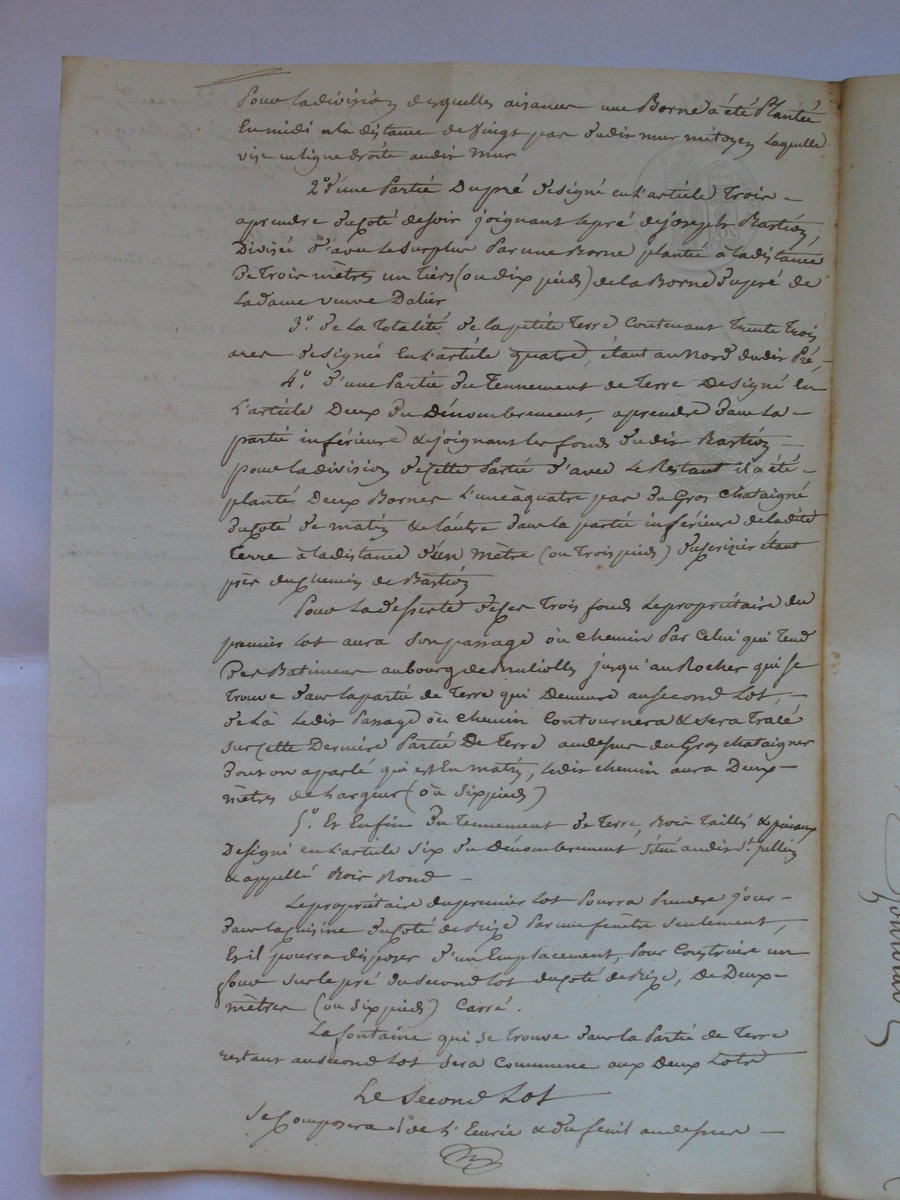 Pour la division desquelles aisances une Borne a été Plantée
En midi a la distance de vingt pas dudit mur mitoyen laquelle
vise en ligne droite audit Mur
2.° d'une Partie Du pré designé en l'article Trois –
aprendre du coté de soir joignant le pré de joseph Bastion,
Divisée d'avec le surplus Par une Borne plantée à la distance
De Trois mètres un Tiers (ou dix pieds) de la Borne du pré de
La dame veuve Dalier
3.° de la Totalité de la petite Terre Contenant Trente Trois
ares designée En l'article quatre, étant au Nord dudit Pré,
4.° d'une Partie du Tennement de Terre Designé En
L'article Deux du Dénombrement, aprendre dans la –
partie inférieure & joignant les fonds dudit Bastion –
pour la division de cette Partie d'avec Le Restant il a été –
planté Deux Bornes L'une à quatre pas du Gros Chataigné
du coté de matin & l'autre dans la partie inférieure de ladite
Terre à la distance d'un mètre (ou Trois pieds) du cerizier étant
près du chemin de Bastion
Pour La desserte de ces Trois fonds Le propriétaire du
premier lot aura son passage ou chemin Par Celui qui Tend
Des Batimens au bourg de jusqu'au Rocher qui se
Trouve dans la partie de Terre qui Demeure au second Lot, –
de là Ledit Passage ou chemin Contournera & sera Tracé
sur cette Dernière Partie De Terre au dessus du Gros chataigner
Dont on a parlé qui est En matin, ledit chemin aura Deux –
mètres de Largeur (ou six pieds)
5.° Et Enfin du Tennement de Terre, Bois Taillis &
Designé en L'article six du Dénombrement situé audit St.
& appellé Bois Rond –
Le propriétaire du premier Lot Pourra Prendre jour –
dans la cuisine du coté de Bize Par une fenêtre seulement,
Et il pourra disposer d'un Emplacement, Pour Construire un
four sur le pré du second lot du coté de Bize, De Deux –
mètres (ou six pieds) Carré.
La fontaine qui se Trouve dans la Partie de Terre
restant au second Lot sera Commune aux Deux Lots
Le Second Lot
Se Composera 1.° de l'Ecurie & du fenil au dessus –